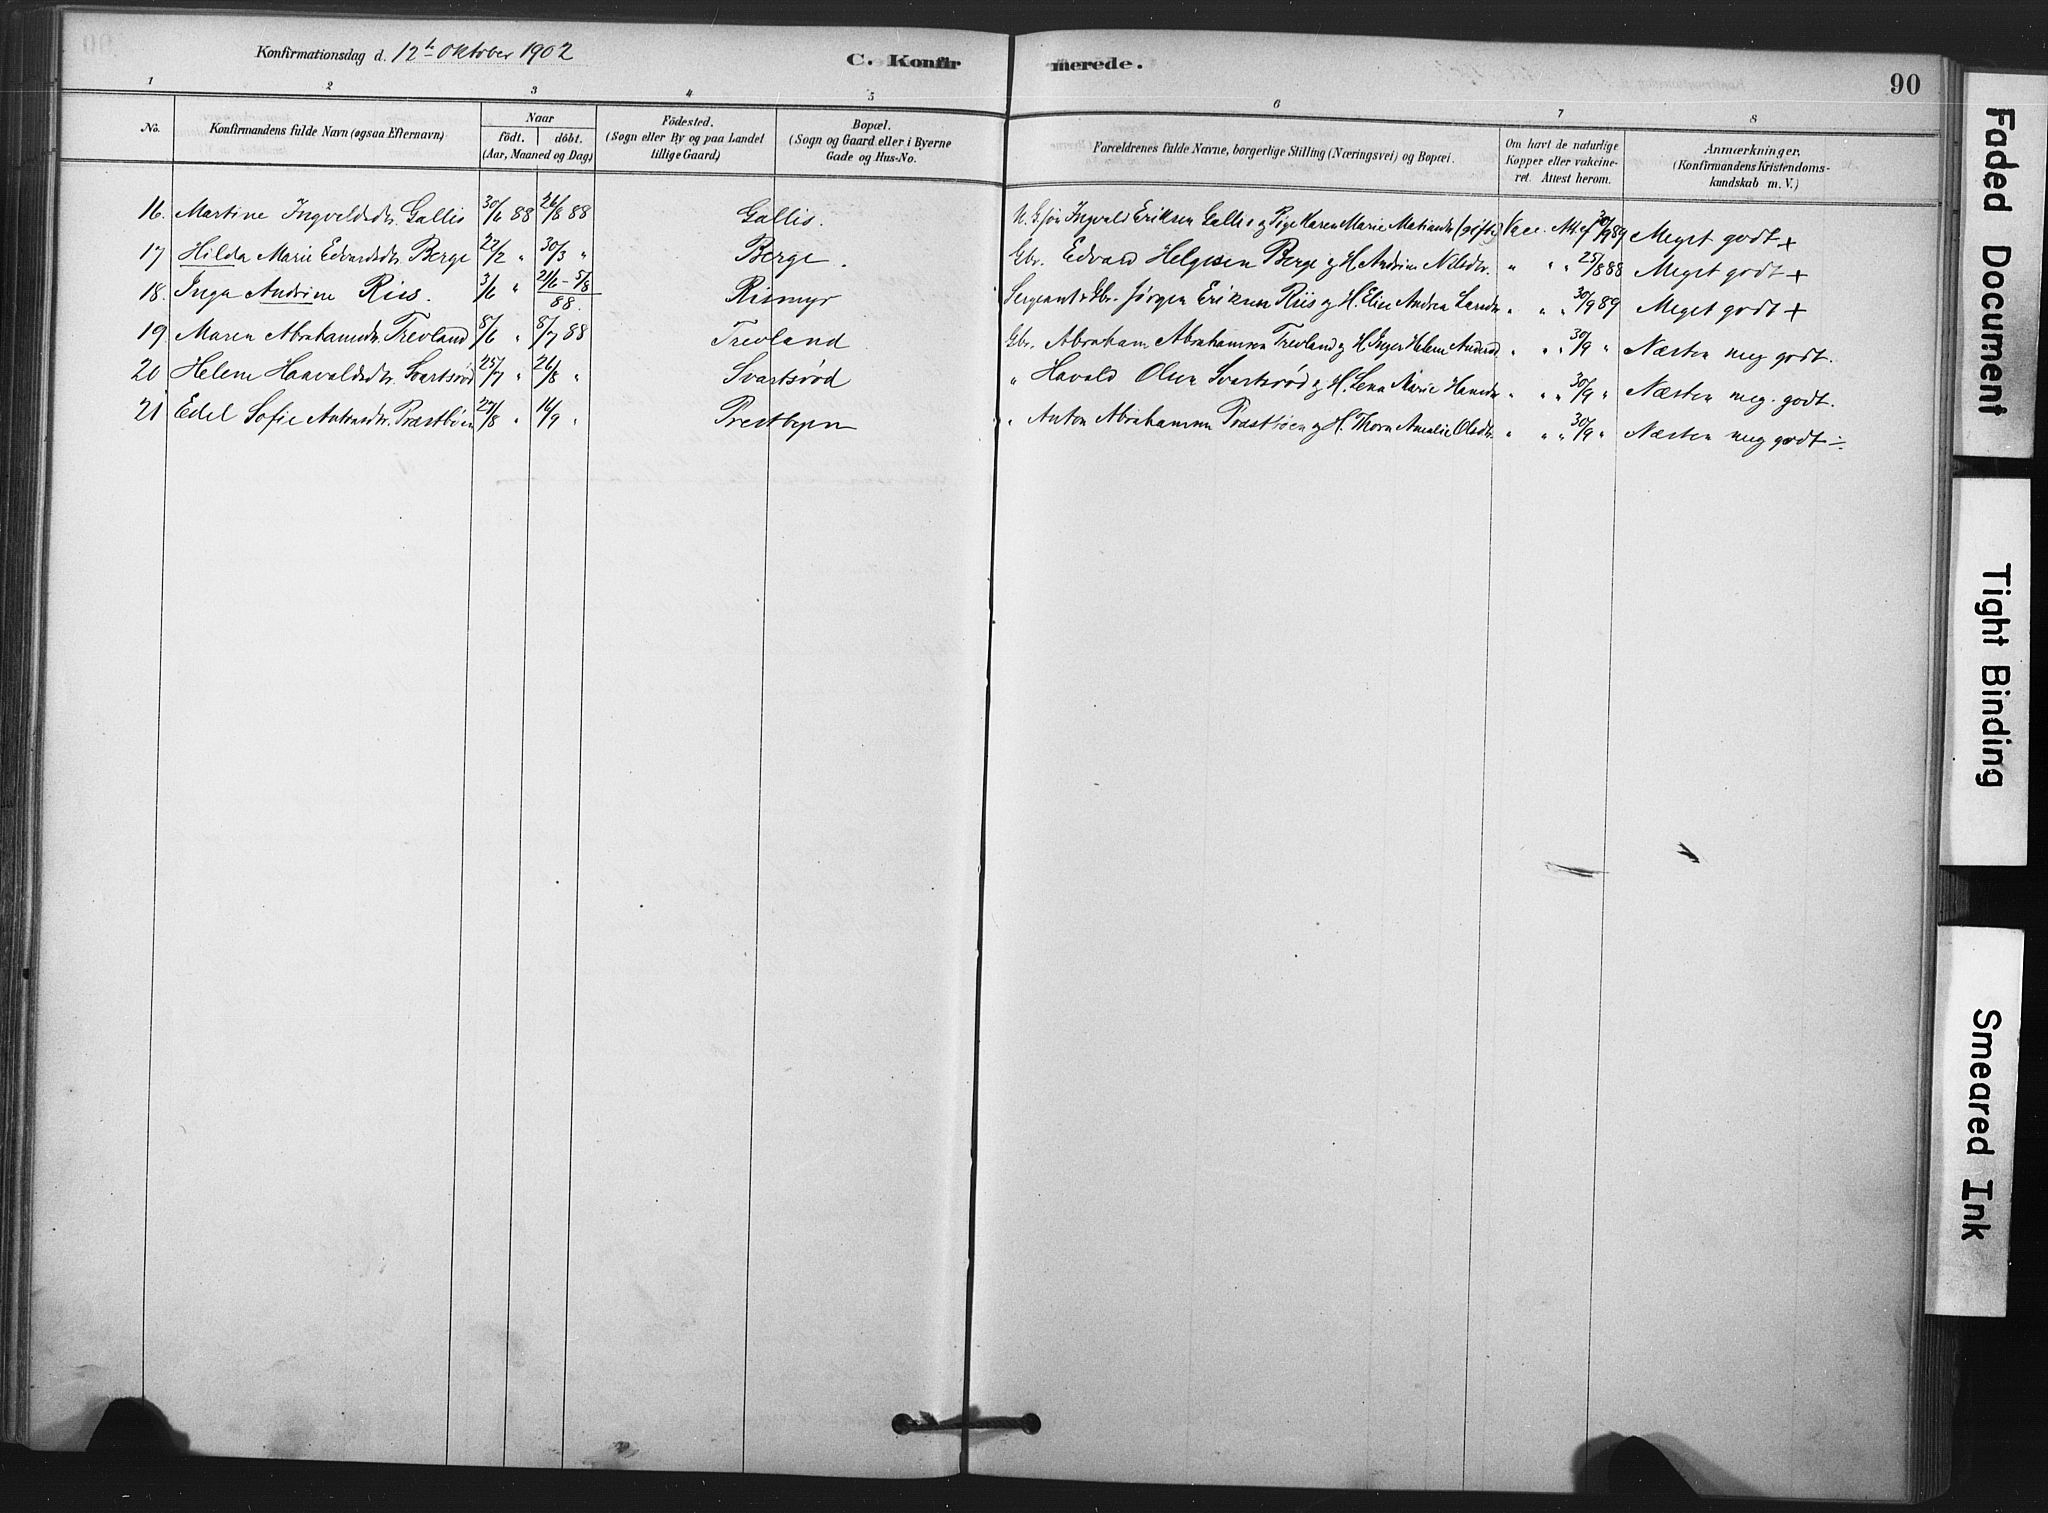 Konfirmationsdag d. 12te Oktober 1902
C. Konfirmerede.
90
1 2 3 4 5 6 7 8
No.
Konfirmandens fulde Navn (ogsaa Efternavn)
Naar
födt. döbt.
(Aar, Maaned og Dag)
Födested.
(Sogn eller By og paa Landet
tillige Gaard)
Bopæl.
(Sogn og Gaard eller i Byerne
Gade og Hus-No.
Forældrenes fulde Navne, borgerlige Stilling (Næringsvei) og Bopæl.
Om havt de naturlige
Kopper eller vakcine-
ret. Attest herom.
Anmærkninger,
(Konfirmandens Kristendoms-
kundskab m. V.)
16. Martine Ingvaldsdtr. Gallis 30/6 88 26/8 88 Gallis. Ingvald Eriksen Gallis og Pige Karen Marie (gift) Vacc. Att. af 30/9 89 Meget godt +
17 Hilda Marie Edvardsdtr. Berge 22/2 " 30/3 " Berge. Gbr. Edvard Helgesen Berge og H. Andrine Nilsdtr. " " 25/8 88 Meget godt +
18. Inga Andrine Riis. 3/6 " 21/6 - 5/8 88. Rismyr Sergeant & Gbr. Jörgen Eriksen Riis og H. Elise Andrea Larsdtr " " 30/9 89 Meget godt +
19 Maren Abrahamsdtr. Trevland 8/6 " 8/7 88 Trevland Gbr. Abraham Abrahamsen Trevland og H. Inger Helene Andersd " " 30/9 " Næsten meg godt.
20 Helene Haavaldsdtr. Svartsröd 25/7 " 26/8 " Svartsröd " Havald Olsen Svartsröd og H. Lena Marie Hansdtr " " 30/9 " Næsten meg. godt.
21 Edel Sofie Antonsdtr. Præstböen 27/8 " 16/9 " Prestbyen " Anton Abrahamsen Præstböen og H. Thora Amalie Olsdtr. " " 30/9 " Næsten meg godt ÷
Faded Document
Tight Binding
Smeared Ink